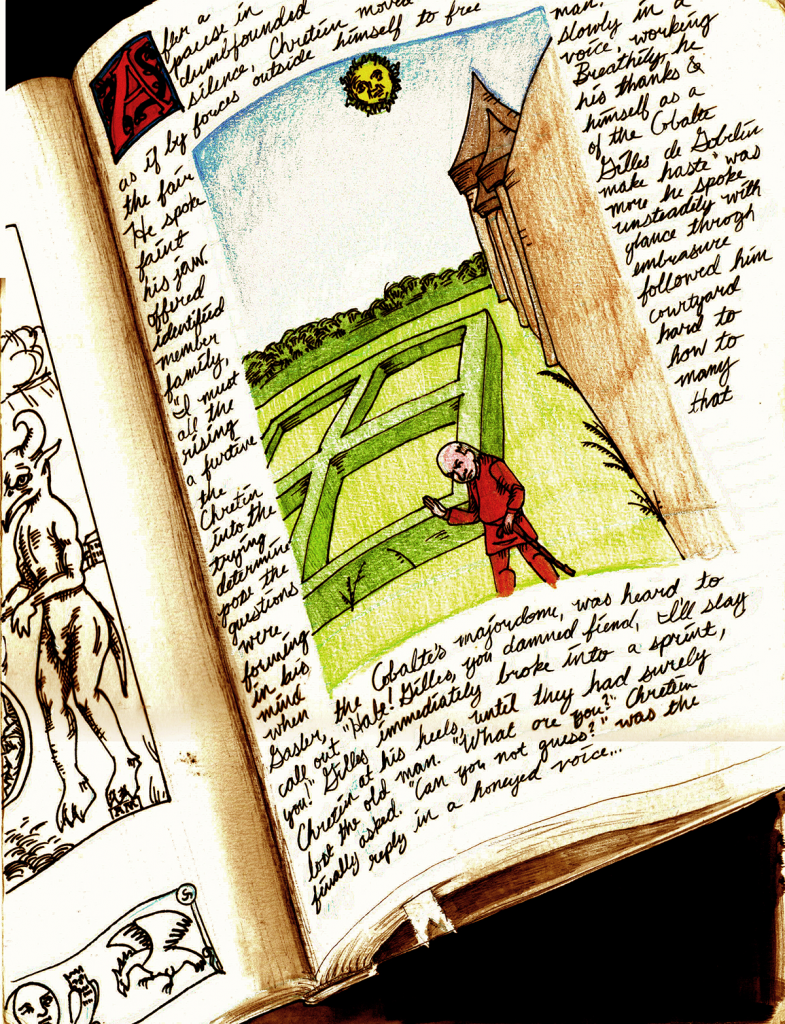 After a
pause in
dumbfounded
silence, Chretin moved
as if by forces outside himself to free
the fair man.
He spoke slowly in a
faint voice, working
his jaw. Breathily, he
offered his thanks &
identified himself as a
member of the Cobalte
family, Gilles de Gobelin
"I must make haste" was
all the more he spoke
rising unsteadily with
a furtive glance through
the embrasure
Chretin followed him
into the courtyard
trying hard to
determine how to
pose the many
questions that
were
forming
in his
mind
when
Gaster, the Cobalte's majordomo, was heard to
call out "Halt! Gilles, you damned fiend, I'll slay
you!" Gilles immediately broke into a sprint,
Chretin at his heels, until they had surely
lost the old man. "What are you?" Chretin
finally asked. "Can you not guess?" was the
reply in a honeyed voice...
5